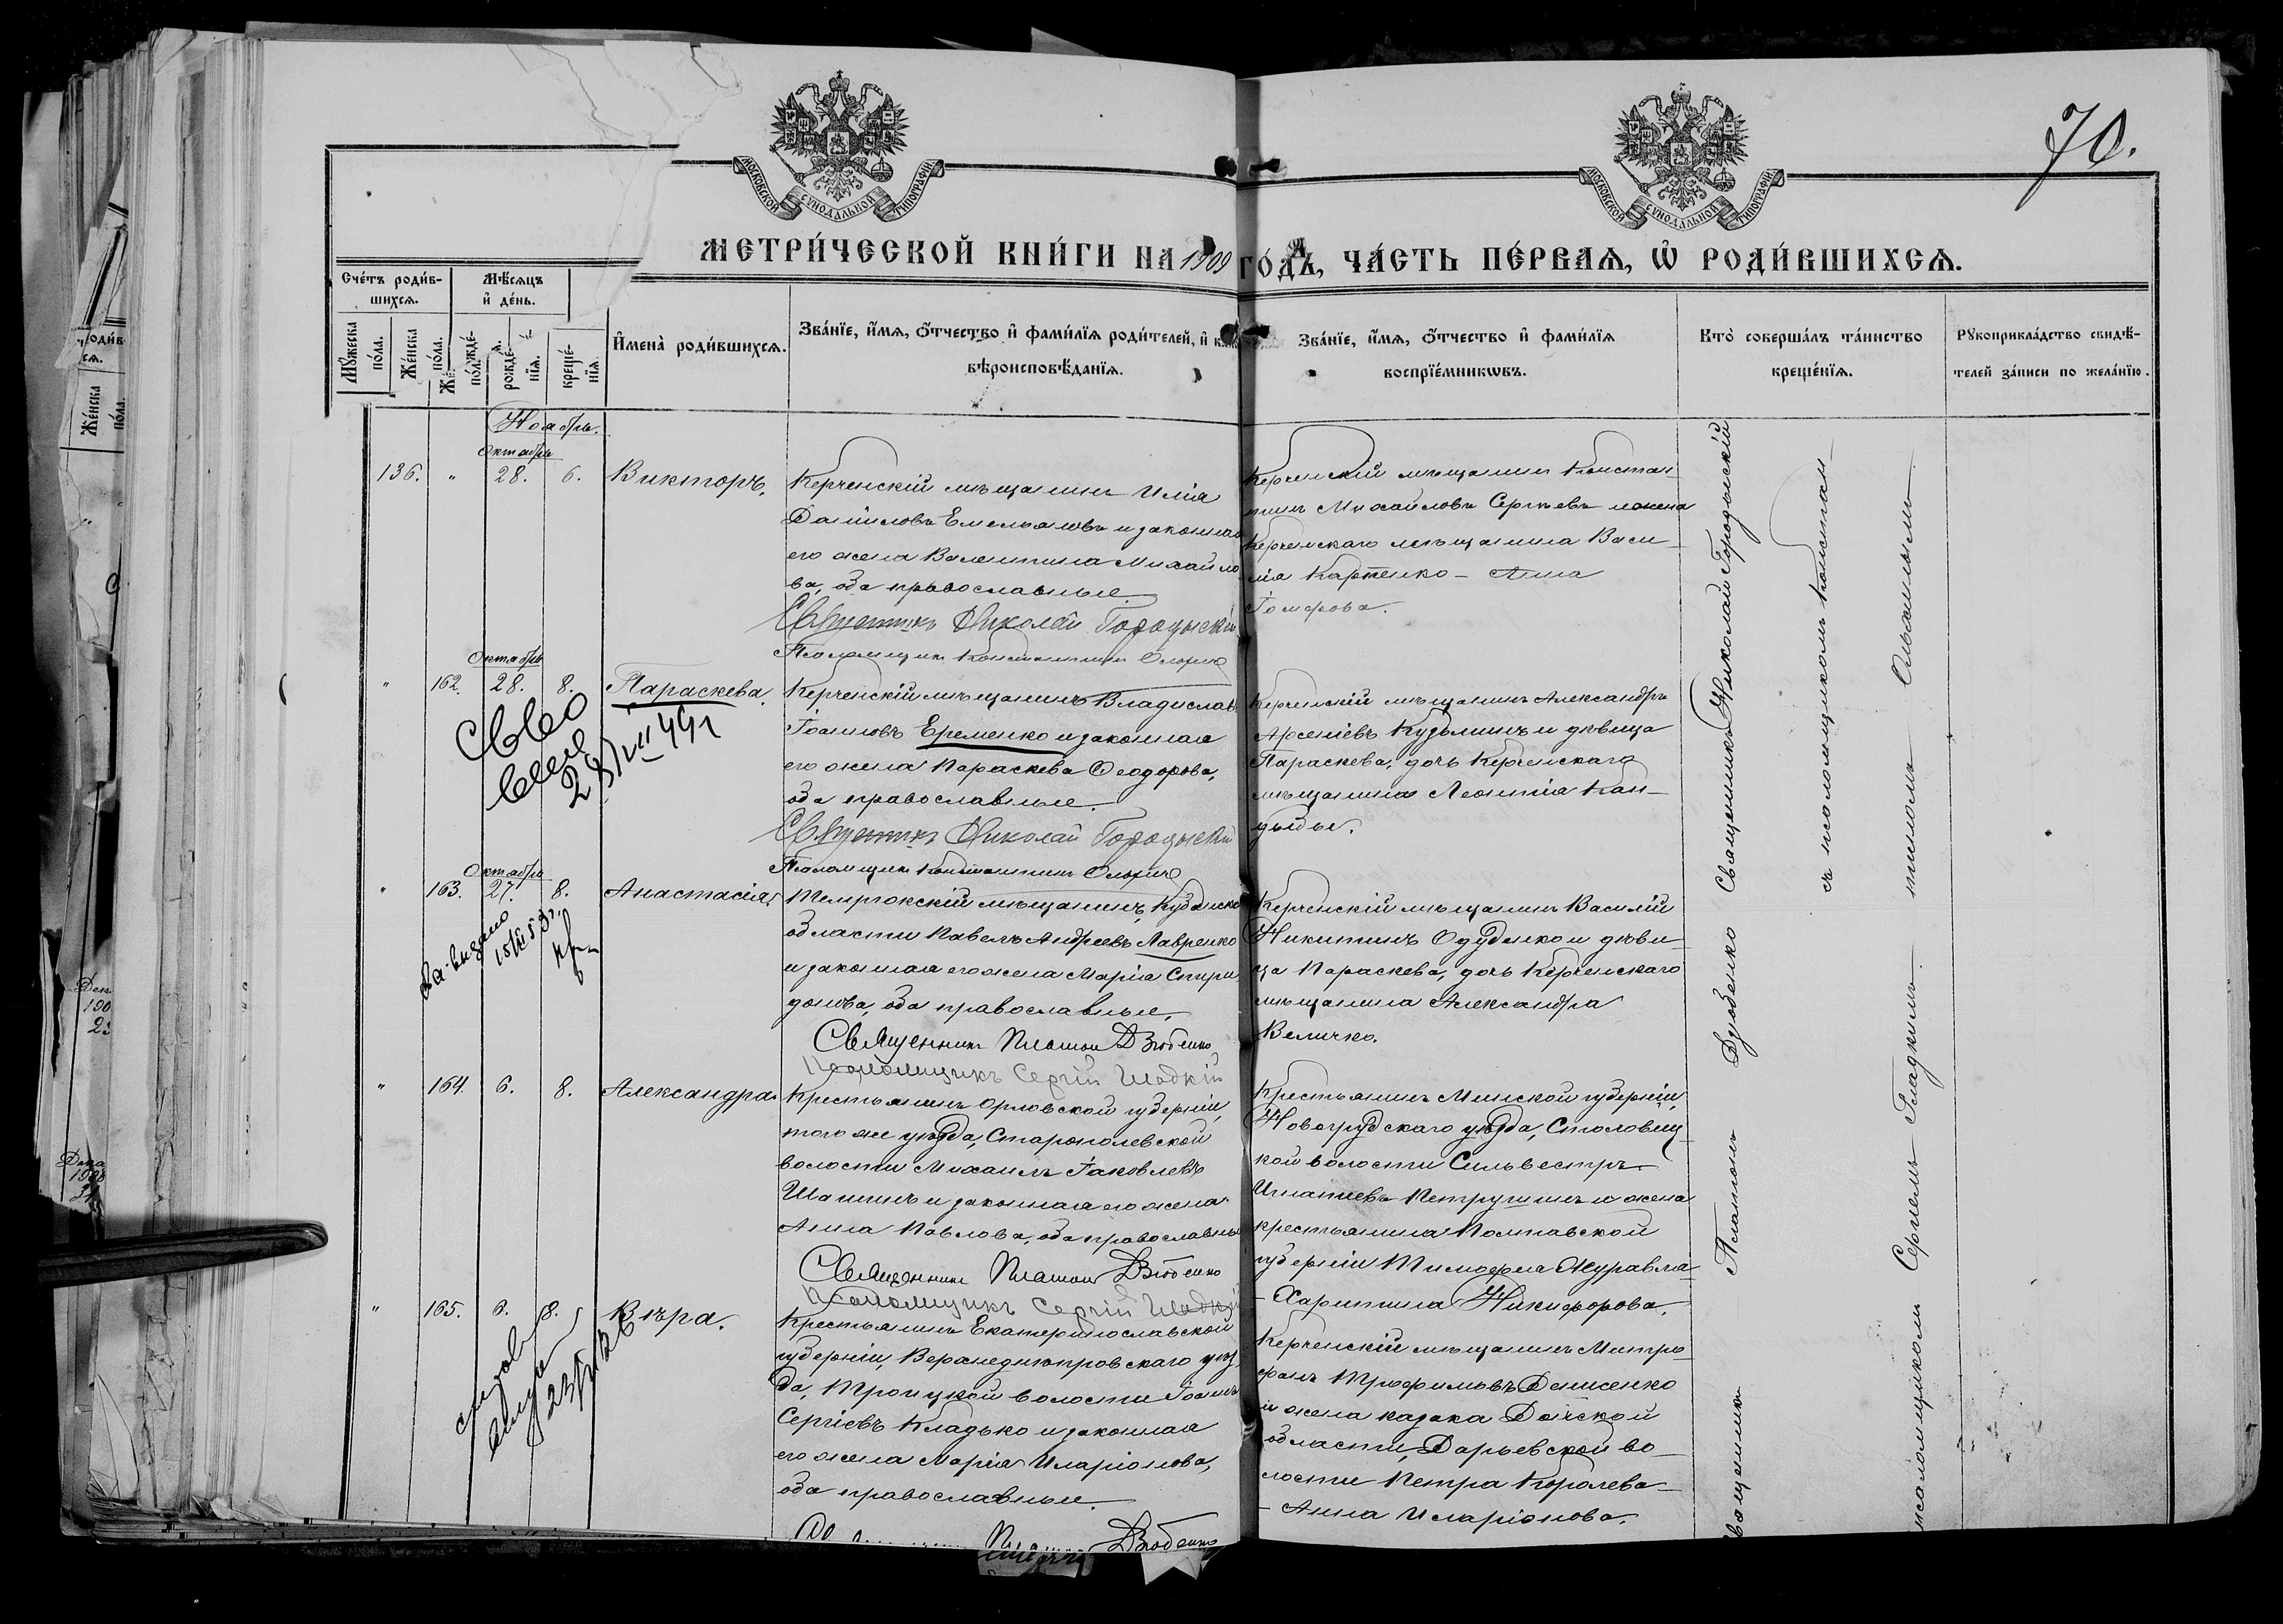 70.
МОСКОВСКОЙ СУНОДАЛЬНОЙ ТИПОГРАФІИ
МОСКОВСКОЙ СУНОДАЛЬНОЙ ТИПОГРАФІИ
МЕТРИ́ЧЕСКОЙ КНИ́ГИ НА 1909 ГО́ДЪ, ЧА́СТЬ ПЕ́РВАЯ, Ѡ РОДИ́ВШИХСЯ.
Сче́тъ роди́в-
шихся.
Мѣ́сяцъ
и де́нь.
Мꙋ́жеска
по́ла.
Же́нска
по́ла.
рожде́-
нїя.
креще́-
нїя.
Имена̀ роди́вшихся.
Зва́нїе, и́мя, о́тчество и фами́лїя роди́телей, и
вѣроисповѣ́данїя.
Зва́нїе, и́мя, о́тчество и фами́лїя
воспрїе́мникѡвъ.
Кто̀ соверша́лъ та́инство
креще́нїя.
Рꙋкоприкла́дство свидѣ́-
телей за́писи по жела́нїю.
Ноябрь.
Октябрь
136. " 28. 6. Викторъ.
Керченскій мѣщанинъ Илія
Даніиловъ Емельяновъ и законная
его жена Валентина Михайло
ва, оба православные.
Священникъ Николай Городыскій
Псаломщикъ Константинъ
Керченскій мѣщанинъ Констан-
тинъ Михайловъ Сергѣевъ и жена
Керченскаго мѣщанина Васи-
лія Карпенко - Анна
Октябрь
" 162. 28. 8. Параскева.
28/VII 44г
Керченскій мѣщанинъ Владиславъ
Іоанновъ Еременко и законная
его жена Параскева Ѳеодорова,
оба православные.
Священникъ Николай Городыскій
Псаломщикъ Константинъ
Керченскій мѣщанинъ Александръ
Арсеніевъ Кузьминъ и дѣвица
Параскева, дочь Керченскаго
мѣщанина Леонтія Кан-
дыбы.
Октябрь
" 163. 27. 8. Анастасія.
Темрюкскій мѣщанинъ, Кубанской
области Павелъ Андреевъ Лавренко
и законная его жена Марія Спири
донова, оба православные.
Священникъ Платонъ Дзюбенко
Псаломщикъ Сергій Гладкій
Керченскій мѣщанинъ Василій
Никитинъ Одуденко и дѣви-
ца Параскева, дочь Керченскаго
мѣщанина Александра
Величко.
" 164. 6. 8. Александра.
Крестьянинъ Орловской губерніи,
того же уѣзда, Старопольевской
волости Михаилъ Іаковлевъ
Шапинъ и законная его жена
Анна Павлова, оба православные
Священникъ Платонъ Дзюбенко
Псаломщикъ Сергій Гладкій
Крестьянинъ Минской губерніи,
Новогрудскаго уѣзда, Столовиц-
кой волости Сильвестръ
Игнатіевъ Петручинъ и жена
крестьянина Полтавской
губерніи Тимофея Журавля-
- Харитина Никифорова.
" 165. 6. 8. Вѣра.
Крестьянинъ Екатеринославской
губерніи, Верхнеднѣпровскаго уѣз
да, Троицкой волости Іоаннъ
Сергіевъ Кладько и законная
его жена Марія Иларіонова,
оба православные.
Дзюбенко
Керченскій мѣщанинъ Митро-
фанъ Трофимовъ Денисенко
и жена казака Донской
области, Дарьевской во-
лости Петра Королева
- Анна Иларіонова.
Священникъ Николай Городыскій
съ псаломщикомъ Констан-
тиномъ
Священникъ Платонъ Дзюбенко
псаломщикомъ Сергіемъ Гладкимъ.